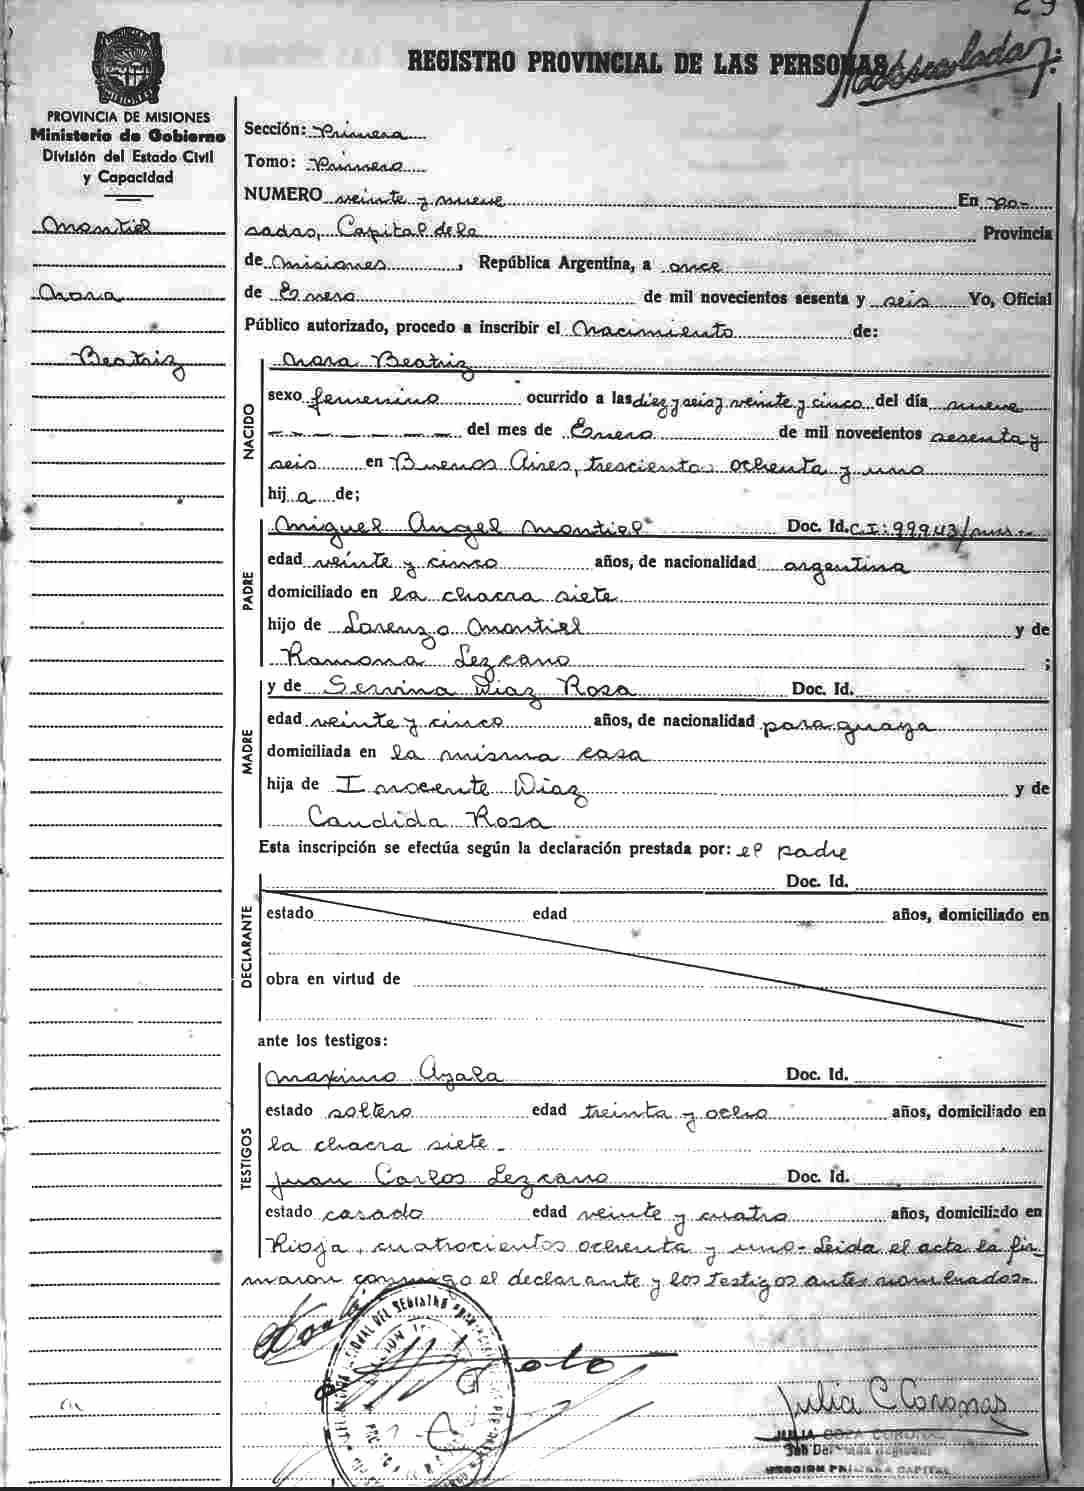 29
REGISTRO PROVINCIAL DE LAS PERSONAS
PROVINCIA DE MISIONES
Ministerio de Gobierno
División del Estado Civil
y Capacidad
Montiel
Nora
Beatriz
Sección: Primera
Tomo: Primero
NUMERO veinte y nueve En Po-
sadas, Capital de la Provincia
de Misiones, República Argentina, a once
de Enero de mil novecientos sesenta y seis Yo, Oficial
Público autorizado, procedo a inscribir el Nacimiento de:
NACIDO
Nora Beatriz
sexo femenino ocurrido a las diez y seis y veinte y cinco del día nueve
del mes de Enero de mil novecientos sesenta y
seis en Buenos Aires, trescientos ochenta y uno
hij a de;
PADRE
Miguel Angel Montiel Doc. Id. C.I: 99943/
edad veinte y cinco años, de nacionalidad argentina
domiciliado en la chacra siete
hijo de Lorenzo Montiel y de
Ramona Lezcano ;
MADRE
y de Servina Diaz Rosa Doc. Id.
edad veinte y cinco años, de nacionalidad paraguaya
domiciliada en la misma casa
hija de Inocente Diaz y de
Candida Rosa
Esta inscripción se efectúa según la declaración prestada por: el padre
DECLARANTE
Doc. Id.
estado edad años, domiciliado en
obra en virtud de
ante los testigos:
TESTIGOS
Maximo Ayala Doc. Id.
estado soltero edad treinta y ocho años, domiciliado en
la chacra siete -
Juan Carlos Lezcano Doc. Id.
estado casado edad veinte y cuatro años, domiciliado en
Rioja, cuatrocientos ochenta y uno - Leida el acta la fir-
maron conmigo el declarante y los testigos antes nombrados -
Julia C Coronas
SECCION PRIMERA CAPITAL